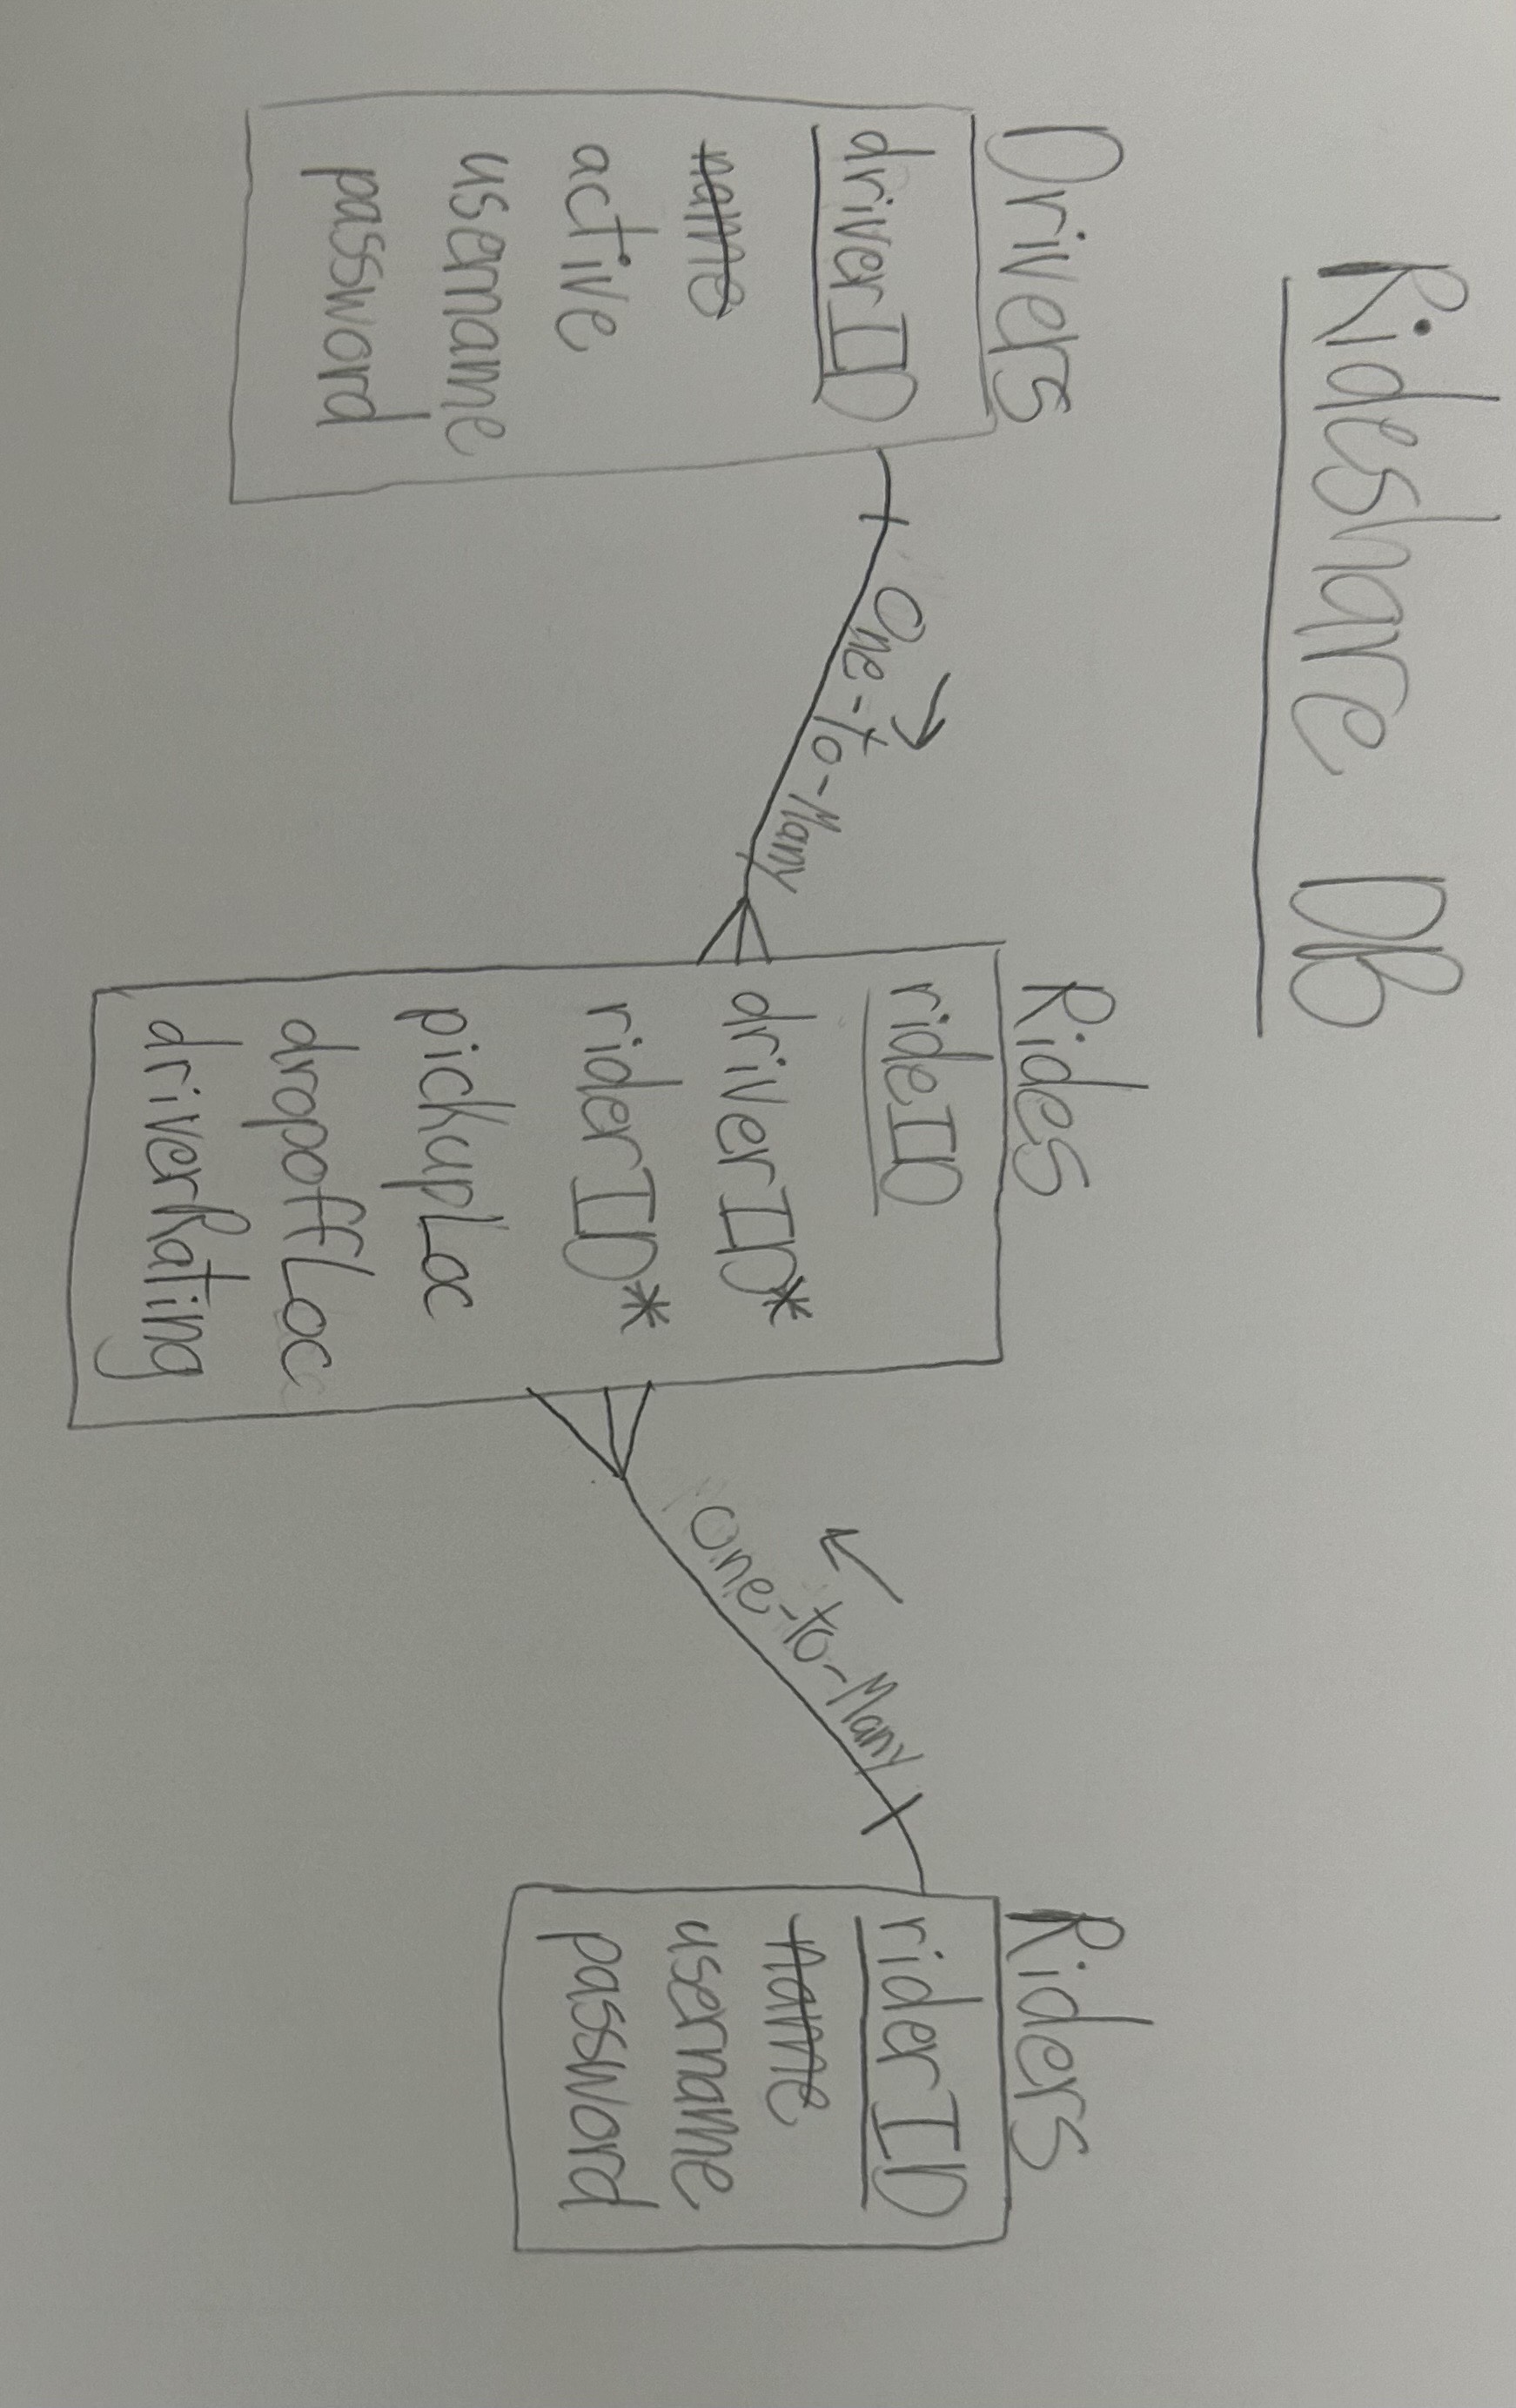 Rideshare DB
Drivers
driverID
name
active
username
password
One-to-Many
Rides
rideID
driverID*
riderID*
pickupLoc
dropoffLoc
driverRating
One-to-Many
Riders
riderID
name
username
password